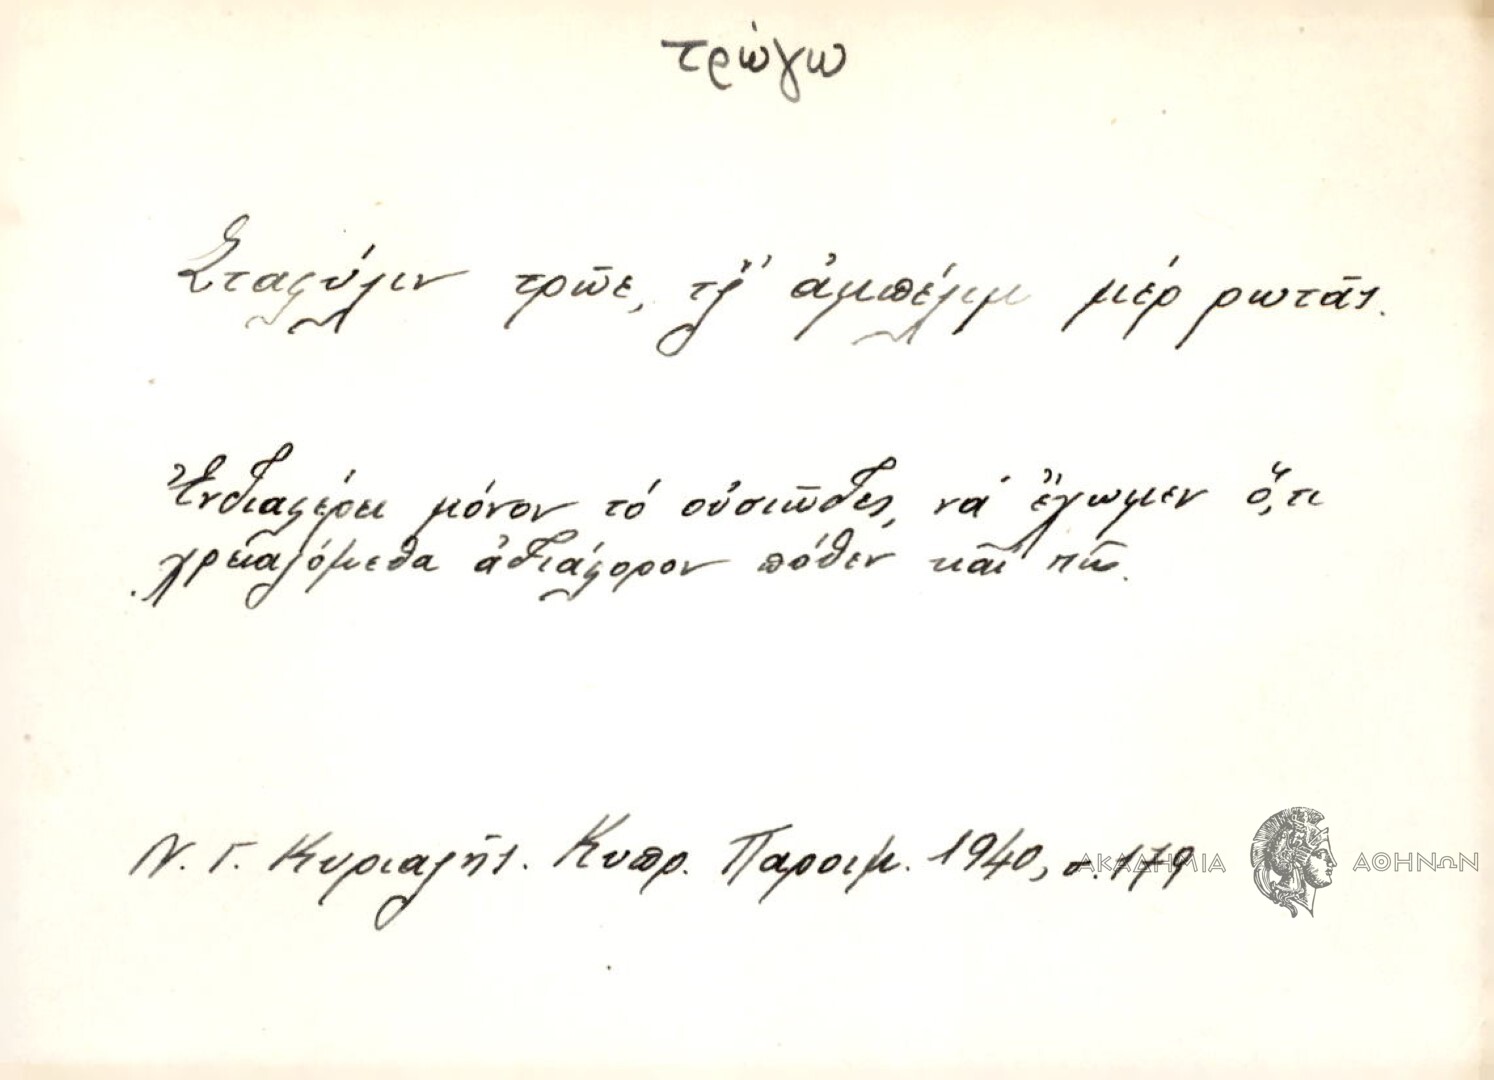 τρώγω
Σταφύλιν τρῶε, τζ̆' ἀμπέλιμ μέρ ρωτᾶς.
Ἐνδιαφέρει μόνον τό οὐσιῶδες, νά ἔχωμεν ὅ,τι
χρειαζόμεθα ἀδιάφορον πόθεν καί πῶς.
Ν. Γ. Κυριαζῆς. Κυπρ. Παροιμ. 1940, σ. 179
ΑΚΑΔΗΜΙΑ ΑΘΗΝΩΝ